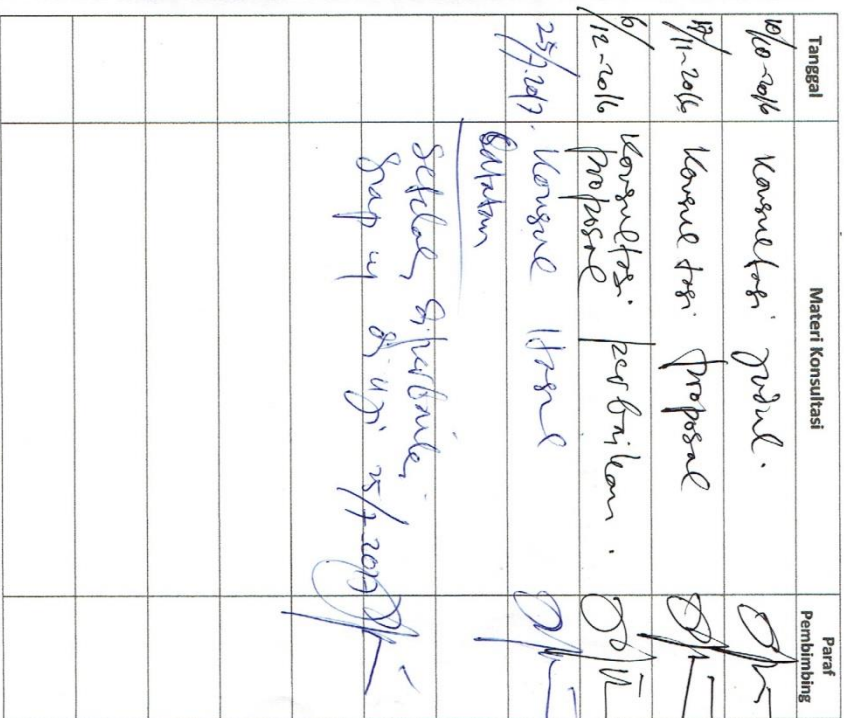 Tanggal Materi Konsultasi Paraf Pembimbing
10/10-2016 Konsultasi judul.
17/11-2016 Konsultasi proposal
6/12-2016 Konsultasi perbaikan
proposal
25/7.2017. Konsul Hasil
Catatan
Setelah diperbaiki
siap uji 25/7-2017